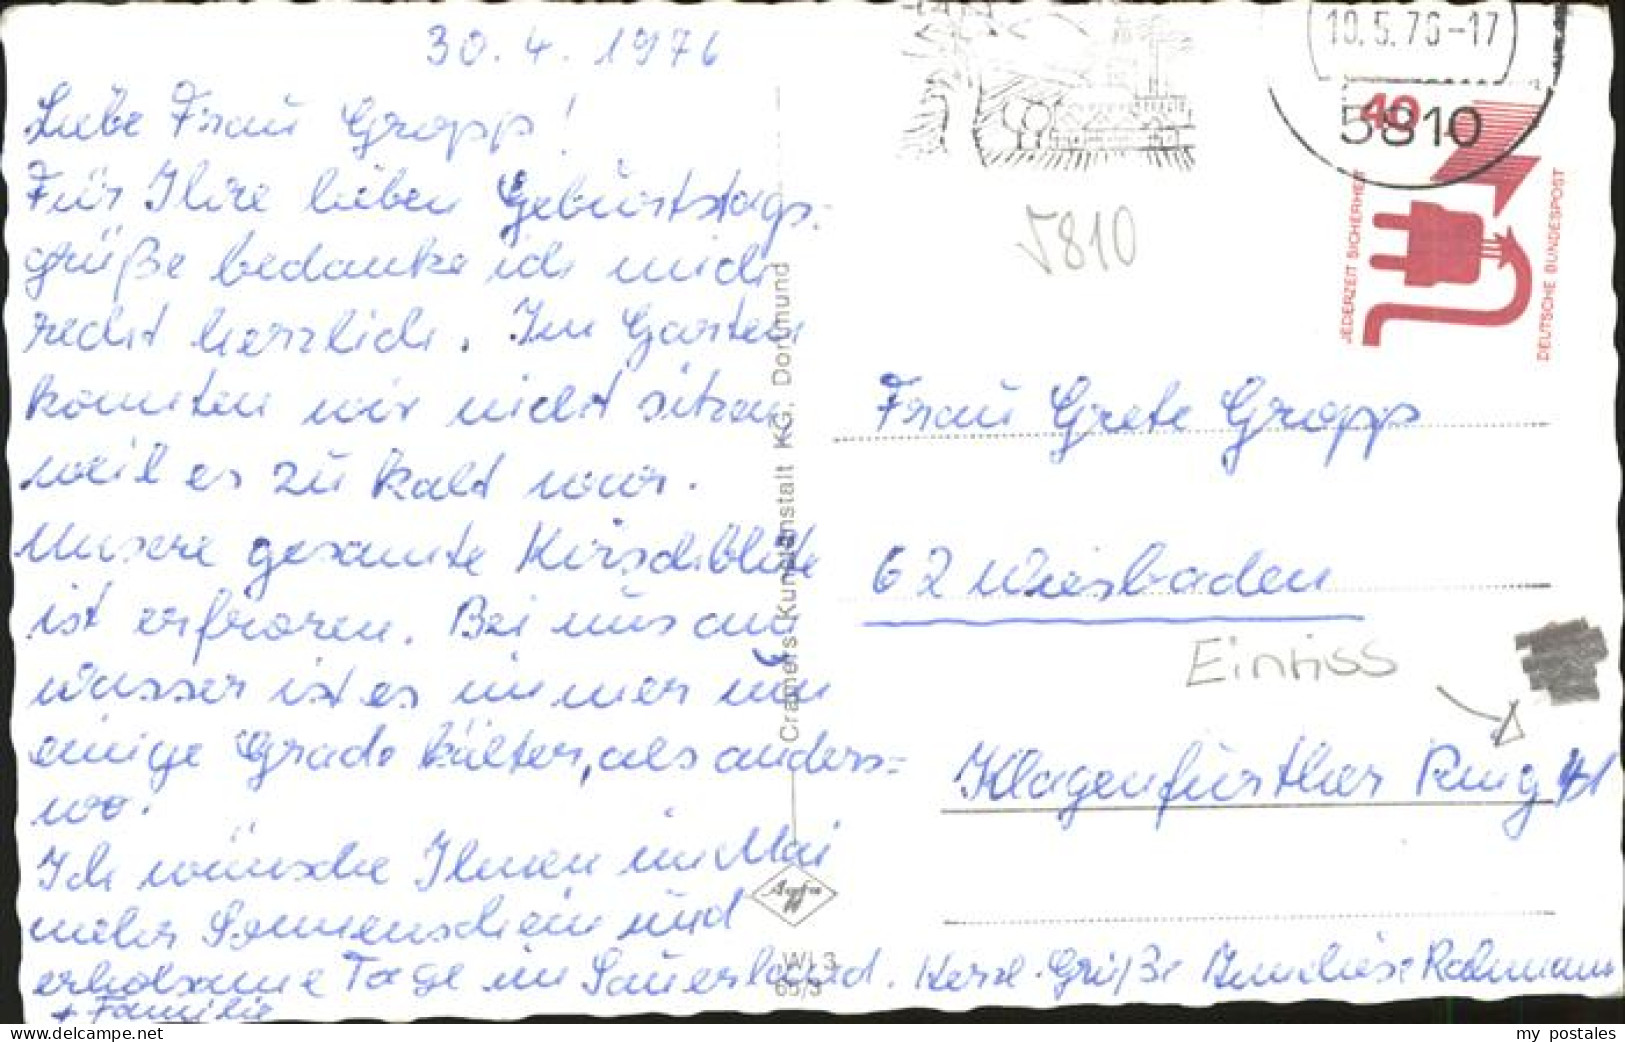 30. 4. 1976
Liebe Frau Gropp!
Für Ihre lieben Geburtstags-
grüße bedanke ich mich
recht herzlich. Im Garten
konnten wir nicht sitzen
weil es zu kalt war.
Unsere gesamte Kirschblüte
ist erfroren. Bei uns am
Wasser ist es immer um
einige Grade kälter, als anders=
wo.
Ich wünsche Ihnen im Mai
mehr Sonnenschein und
erholsame Tage im Sauerland. Herzl. Grüße Anneliese Rahmann
+ Familie
Cramers Kunstanstalt KG, Dortmund
Agfa
WI 3
65/3
10.5.76-17
5810
40
JEDERZEIT SICHERHEIT
DEUTSCHE BUNDESPOST
5810
Frau Grete Gropp
62 Wiesbaden
Einriss
Klagenfurther Ring
my postales
www.delcampe.net